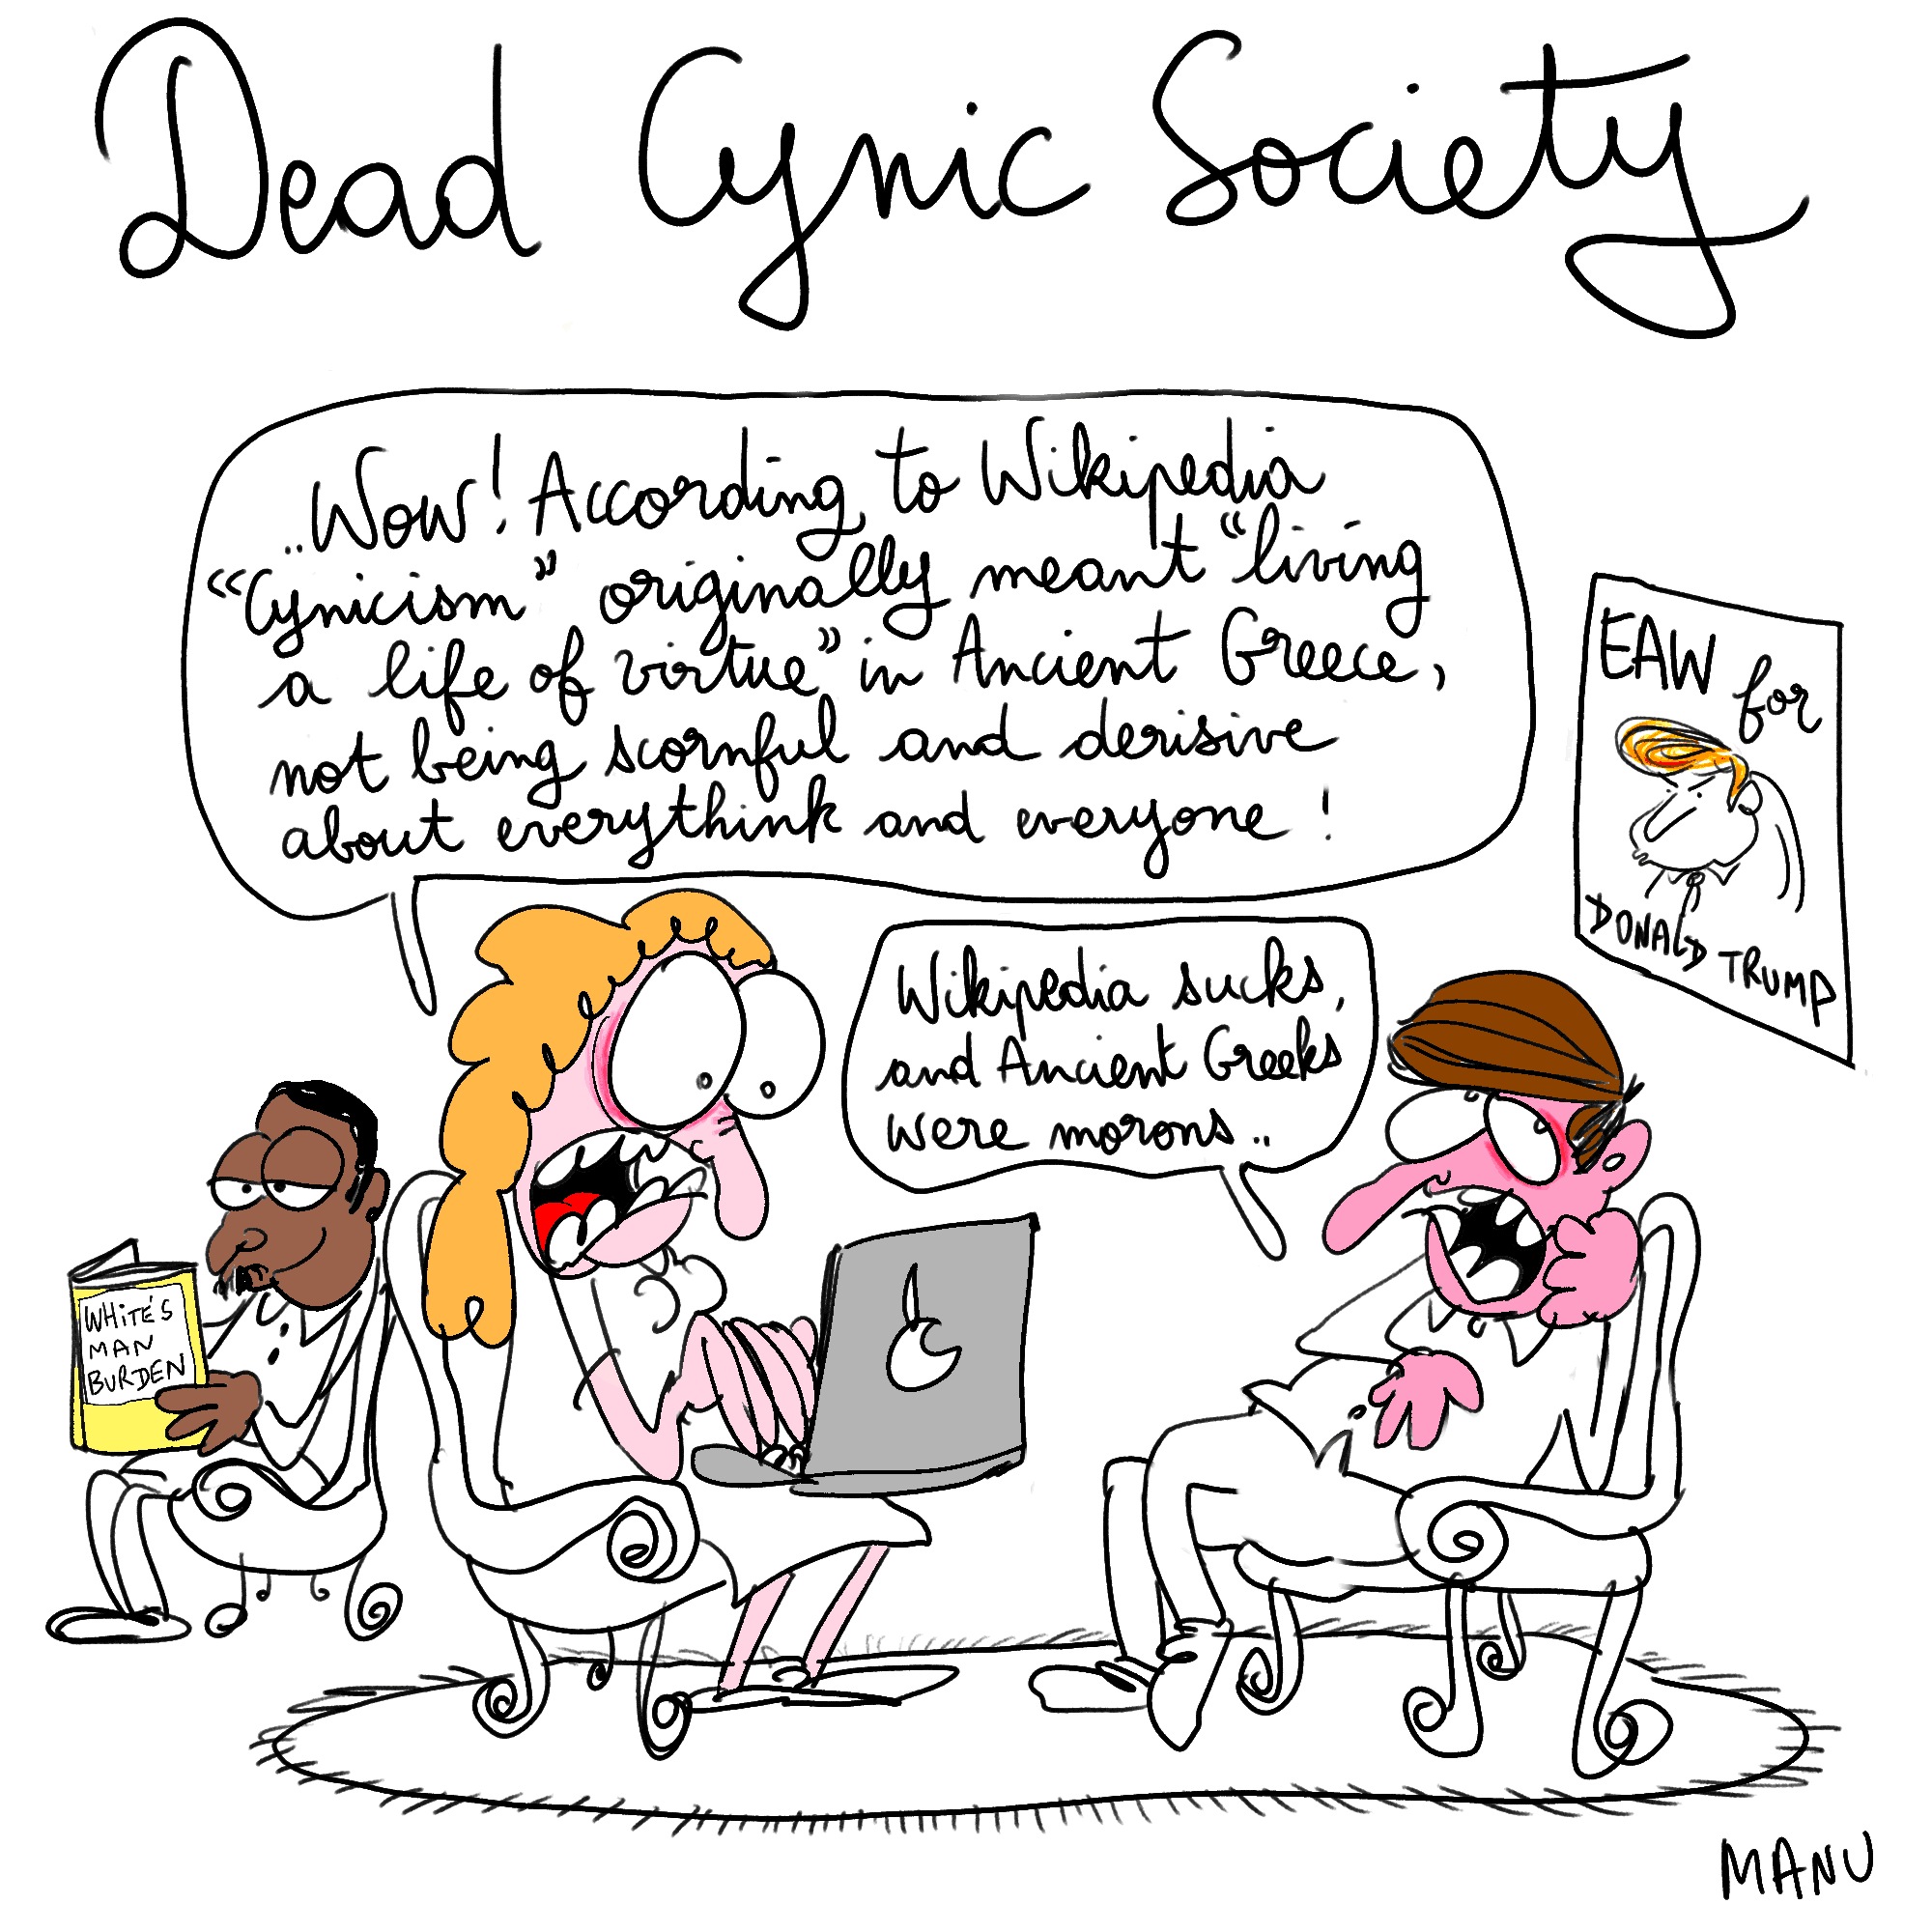 Dead Cynic Society
..Wow! According to Wikipedia
“Cynicism” originally meant “living
a life of virtue” in Ancient Greece,
not being scornful and derisive
about everythink and everyone!
EAW for
DONALD TRUMP
Wikipedia sucks,
and Ancient Greeks
were morons..
WHITE'S
MAN
BURDEN
MANU